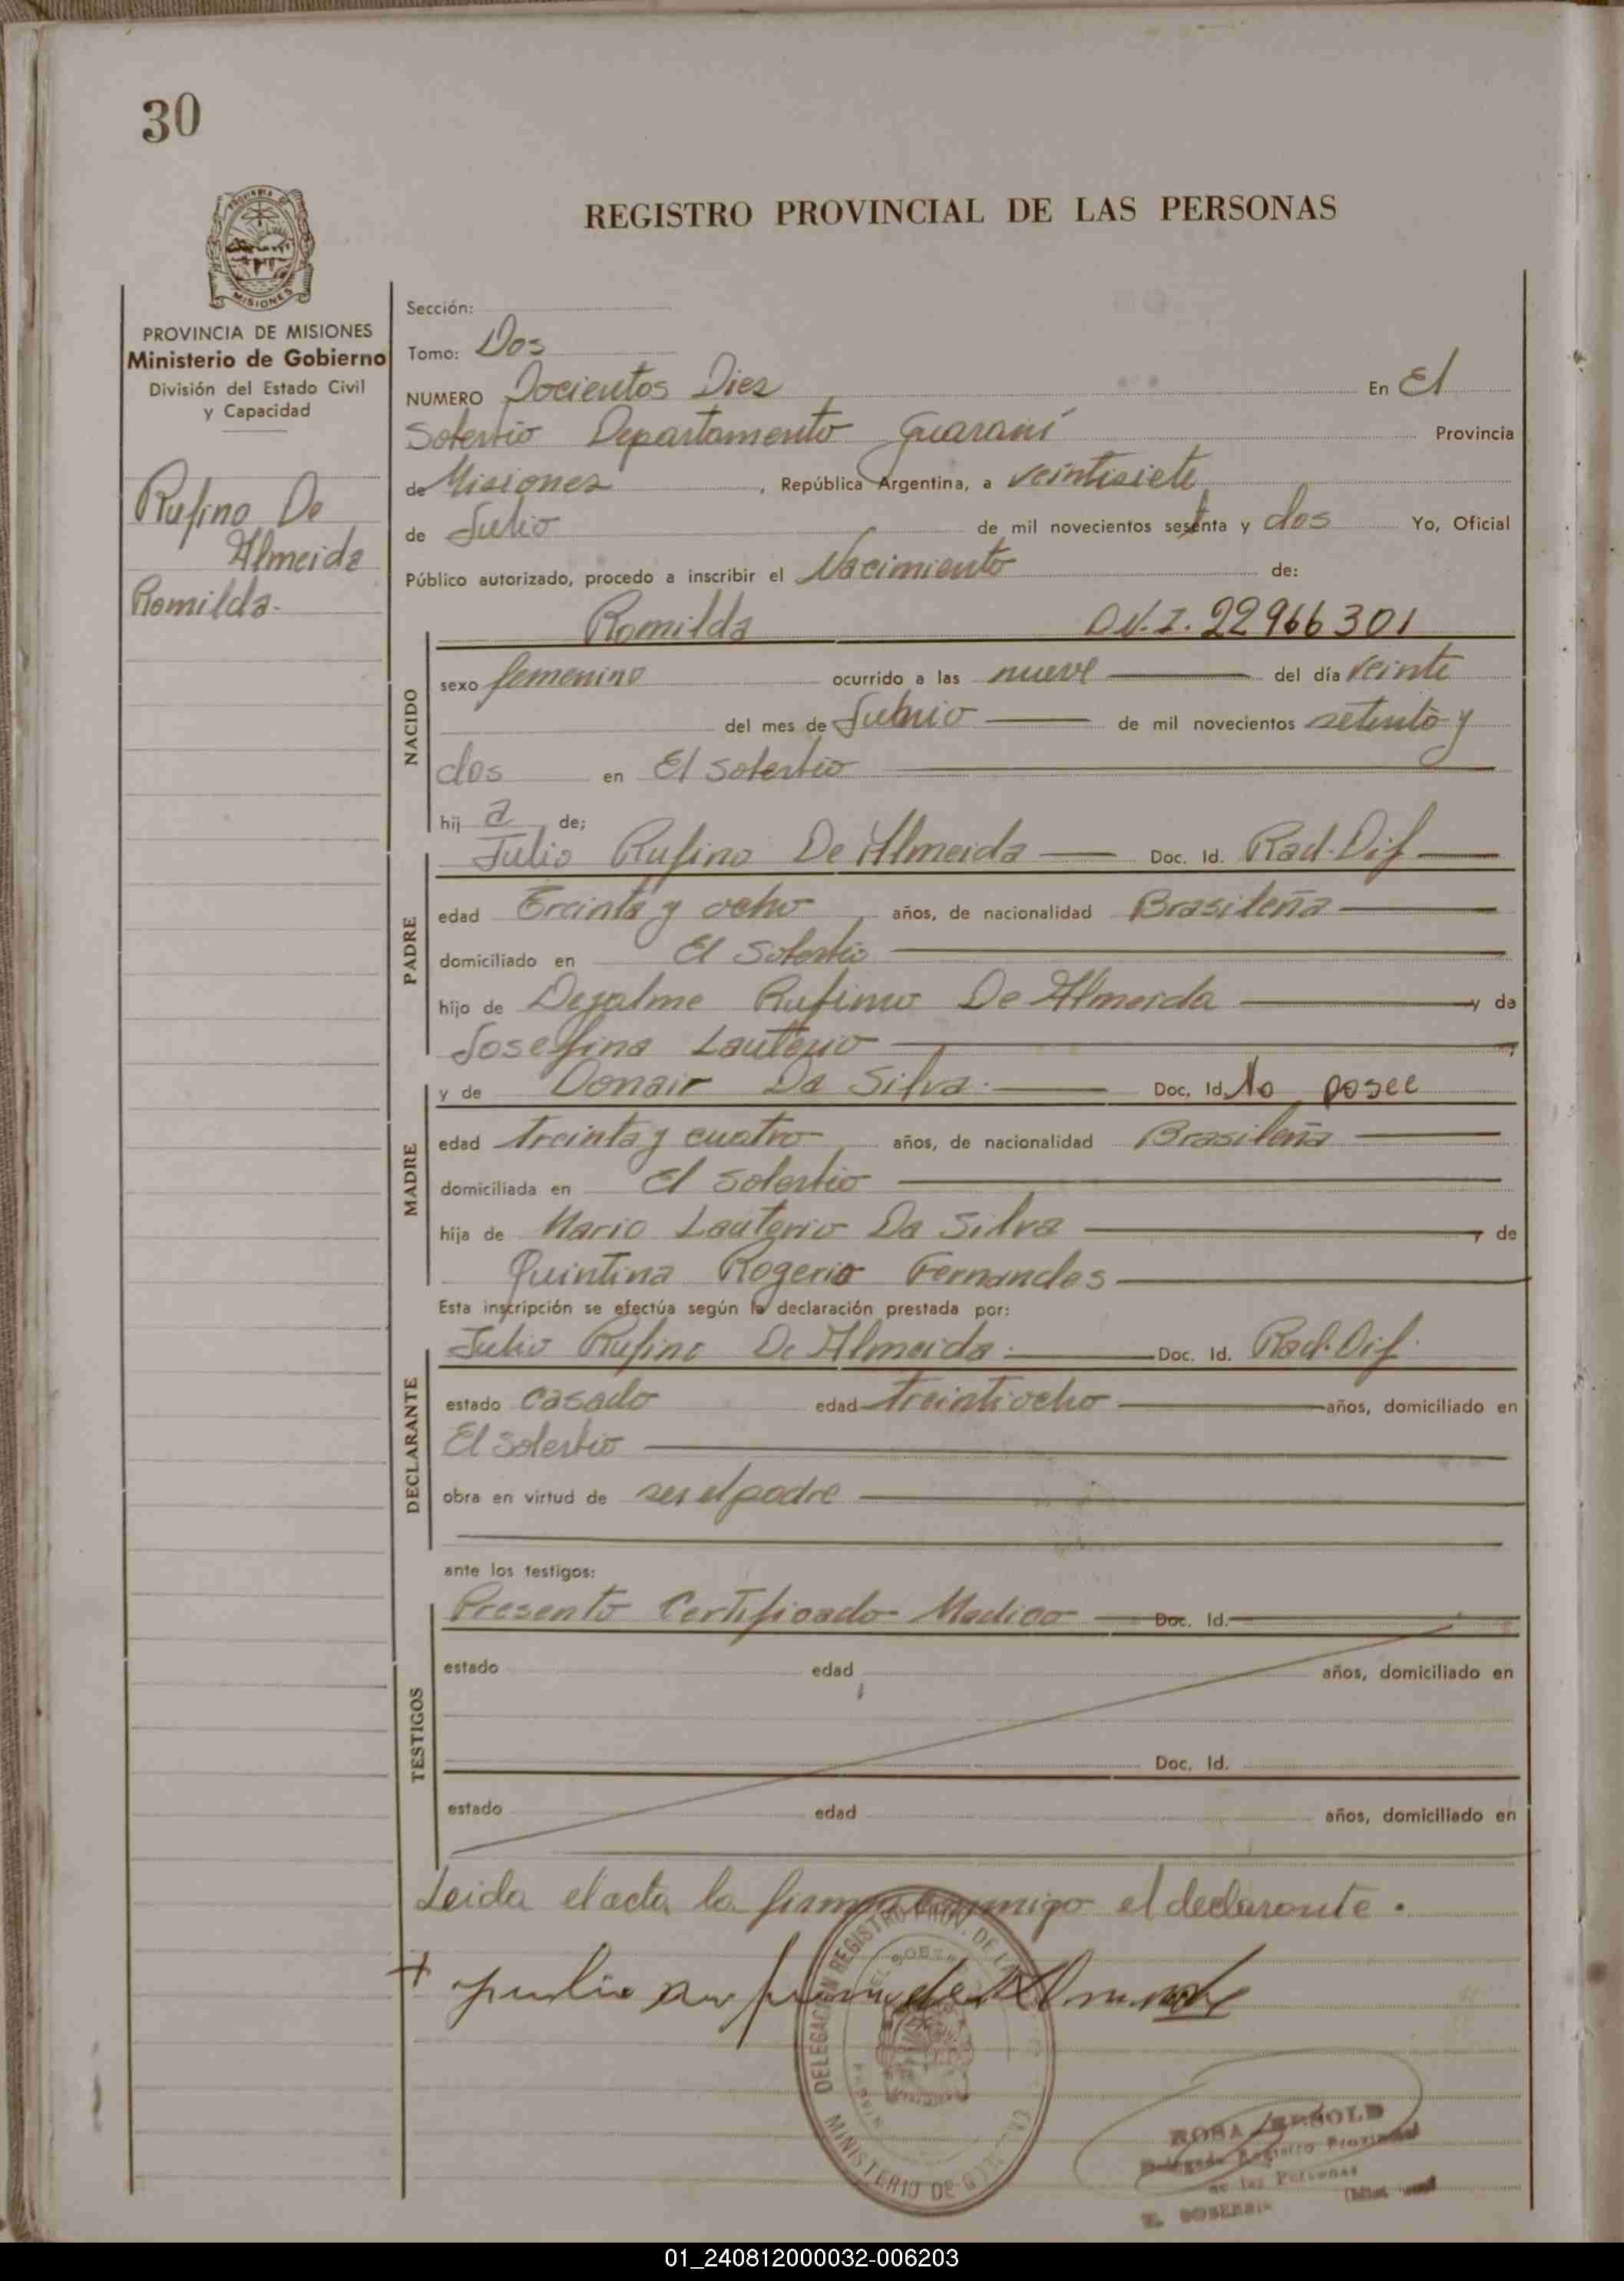 30
REGISTRO PROVINCIAL DE LAS PERSONAS
MISIONES
PROVINCIA DE MISIONES
Ministerio de Gobierno
División del Estado Civil
y Capacidad
Rufino De
Almeida
Romilda.
Sección:
Tomo: Dos
NUMERO Docientos Diez En El
Soberbio Departamento Guaraní Provincia
de Misiones, República Argentina, a veintisiete
de Julio de mil novecientos sesenta y dos Yo, Oficial
Público autorizado, procedo a inscribir el Nacimiento de:
Romilda D.N.I. 22966301
NACIDO
sexo femenino ocurrido a las nueve del día veinte
del mes de Junio de mil novecientos setenta y
dos en El Soberbio
hij a de;
PADRE
Julio Rufino De Almeida Doc. Id. Rad. Dif
edad Treinta y ocho años, de nacionalidad Brasileña
domiciliado en El Soberbio
hijo de Dejalme Rufino De Almeida y de
Josefina Lauterio
MADRE
y de Donair Da Silva. Doc. Id. No posee
edad treinta y cuatro años, de nacionalidad Brasileña
domiciliada en El Soberbio
hija de Mario Lauterio Da Silva y de
Quintina Rogerio Fernandes
Esta inscripción se efectúa según la declaración prestada por:
DECLARANTE
Julio Rufino De Almeida. Doc. Id. Rad. Dif.
estado casado edad treintiocho años, domiciliado en
El Soberbio
obra en virtud de ser el padre
ante los testigos:
TESTIGOS
Presento Certificado Medico Doc. Id.
estado edad años, domiciliado en
Doc. Id.
estado edad años, domiciliado en
Leida el acta la firma conmigo el declarante.
DELEGACION REGISTRO PROV. DE LA
MINISTERIO DE
ROSA
Registro Provincial
de las Personas
01_240812000032-006203